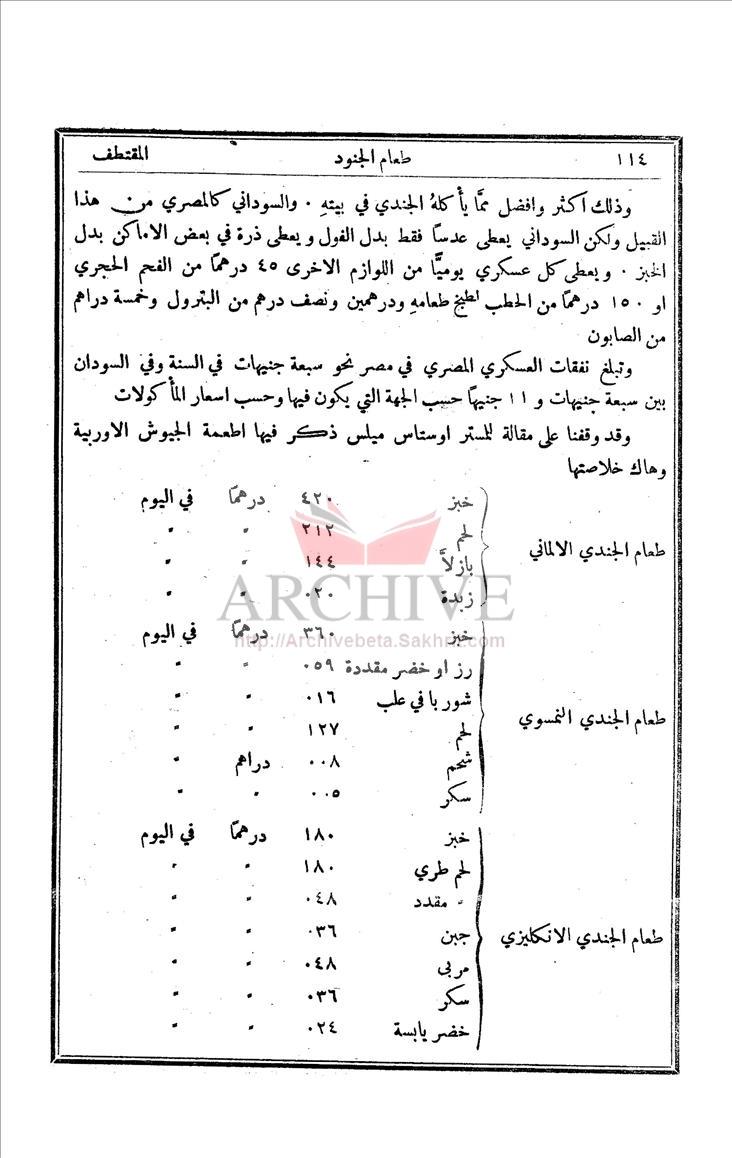 ١١٤ طعام الجنود المقتطف
وذلك اكثر وافضل ممَّا يأكلهُ الجندي في بيتهِ . والسوداني كالمصري من هذا
القبيل ولكن السوداني يعطى عدسًا فقط بدل الفول ويعطى ذرة في بعض الاماكن بدل
الخبز . ويعطى كل عسكري يوميًّا من اللوازم الاخرى ٤٥ درهمًا من الفحم الحجري
او ١٥٠ درهمًا من الحطب لطبخ طعامهِ ودرهمين ونصف درهم من البترول وخمسة دراهم
من الصابون
وتبلغ نفقات العسكري المصري في مصر نحو سبعة جنيهات في السنة وفي السودان
بين سبعة جنيهات و ١١ جنيهًا حسب الجهة التي يكون فيها وحسب اسعار المأكولات
وقد وقفنا على مقالة للمستر اوستاس ميلس ذكر فيها اطعمة الجيوش الاوربية
وهاك خلاصتها
خبز ٤٢٠ درهمًا في اليوم
لحم ٢١٢ " "
طعام الجندي الالماني
بازلاَّ ١٤٤ " "
زبدة ٠٢٠ " "
ARCHIVE
http://Archivebeta.Sakhrit.com
خبز ٣٦٠ درهمًا في اليوم
رز او خضر مقددة ٠٥٩ " "
شوربا في علب ٠١٦ " "
طعام الجندي النمسوي
لحم ١٢٧ " "
شحم ٠٠٨ دراهم "
سكر ٠٠٥ " "
خبز ١٨٠ درهمًا في اليوم
لحم طري ١٨٠ " "
" مقدد ٠٤٨ " "
طعام الجندي الانكليزي
جبن ٠٣٦ " "
مربى ٠٤٨ " "
سكر ٠٣٦ " "
خضر يابسة ٠٢٤ " "